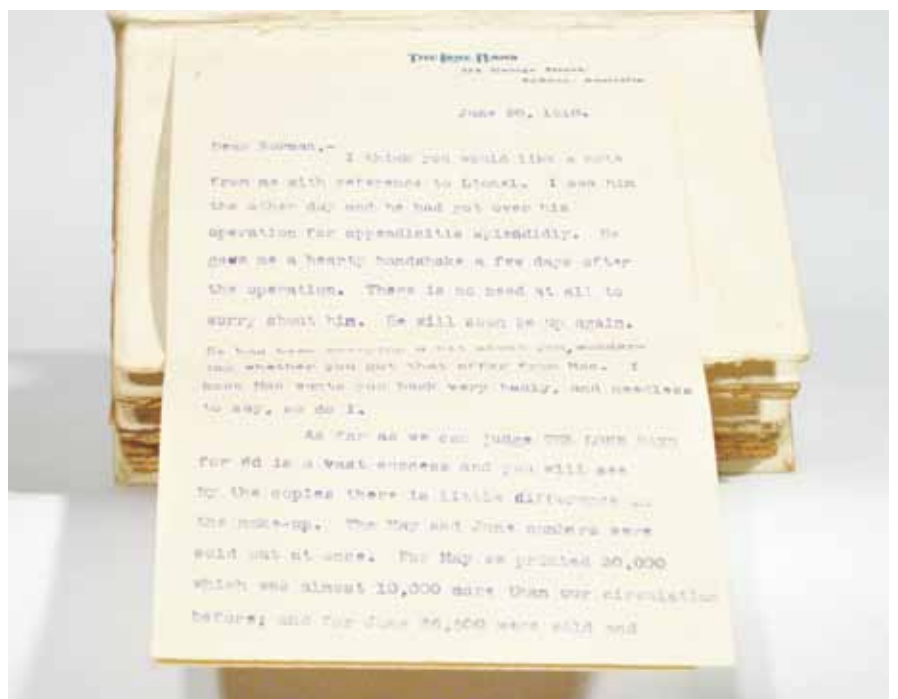 THE LONE HAND
George Street
Sydney, Australia
June 1910.
Dear Norman,-
I think you would like a note
from me with reference to Lionel. I saw him
the other day and he had got over his
operation for appendicitis splendidly. He
gave me a hearty handshake a few days after
the operation. There is no need at all to
worry about him. He will soon be up again.
He has been worrying a bit about you, wonder-
ing whether you got that offer from Mac. I
know Mac wants you back very badly, and needless
to say, so do I.
As far as we can judge THE LONE HAND
for 6d is a vast success and you will see
by the copies there is little difference in
the make-up. The May and June numbers were
sold out at once. For May we printed
which was almost 10,000 more than our circulation
before; and for June were sold and